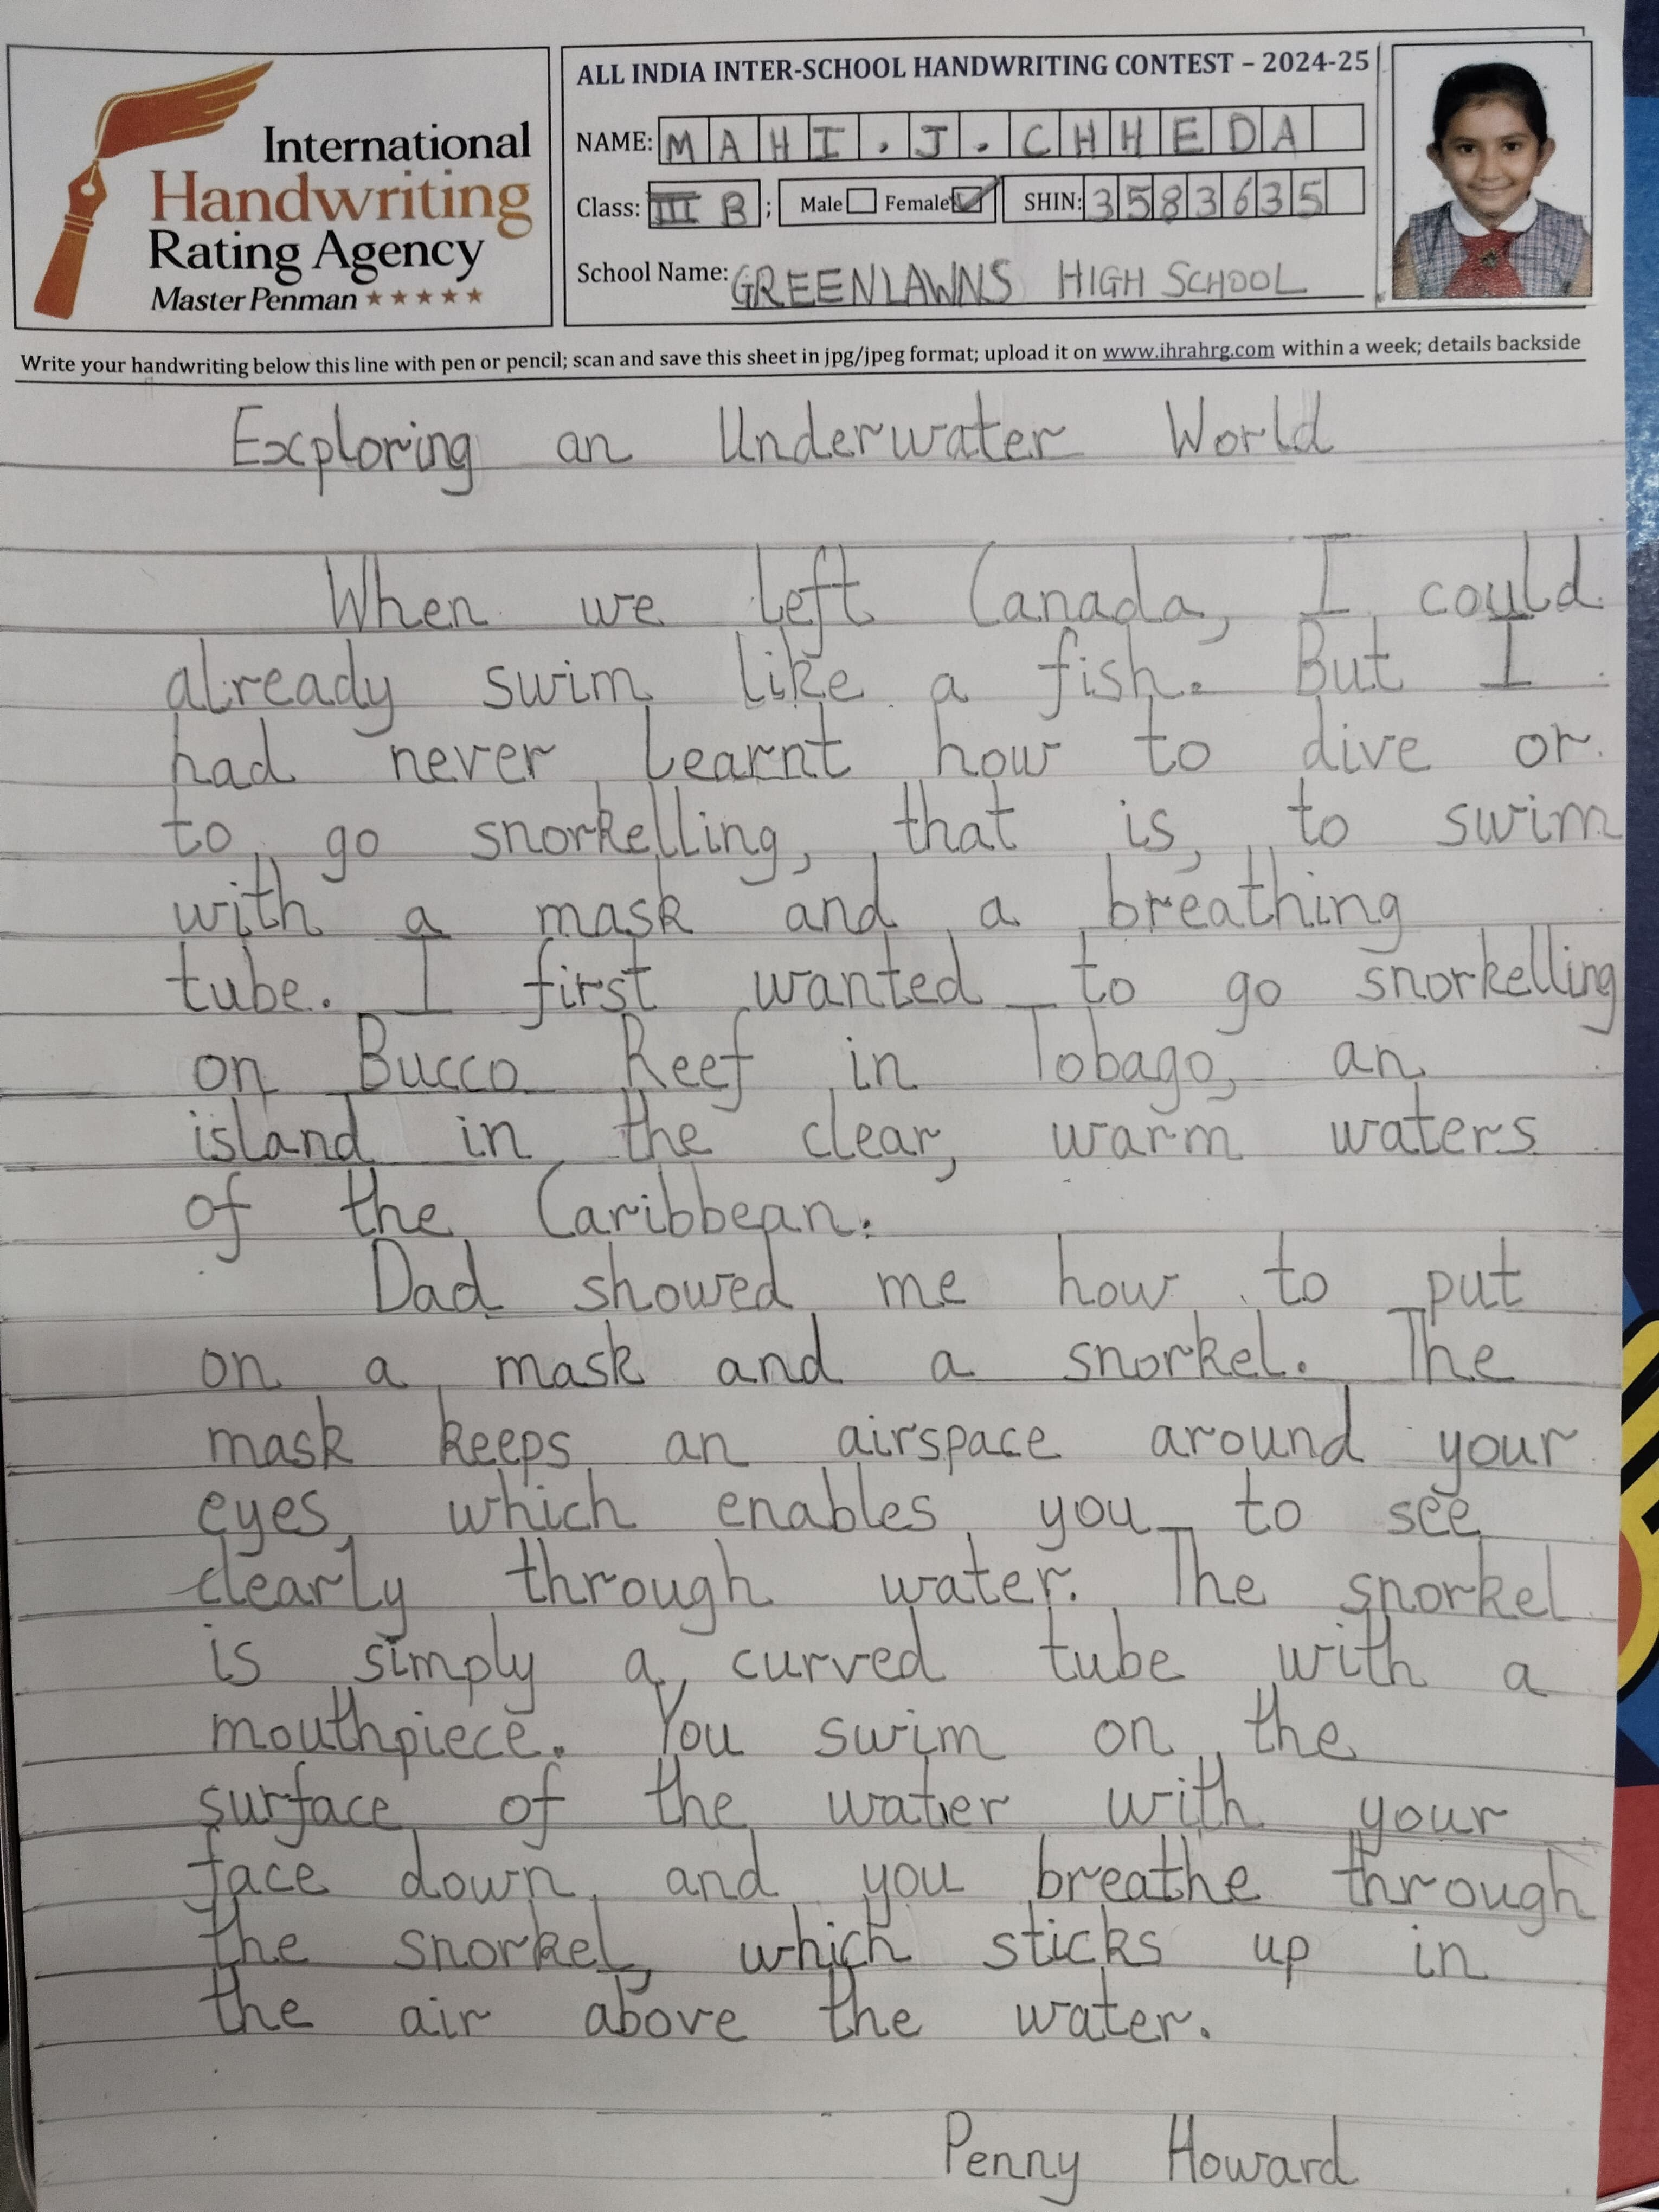 International
Handwriting
Rating Agency
Master Penman ★★★★★
ALL INDIA INTER-SCHOOL HANDWRITING CONTEST – 2024-25
NAME: MAHI.J.CHHEDA
Class: III B ; Male Female SHIN: 3583635
School Name: GREENLAWNS HIGH SCHOOL
Write your handwriting below this line with pen or pencil; scan and save this sheet in jpg/jpeg format; upload it on www.ihrahrg.com within a week; details backside
Exploring an Underwater World
When we left Canada, I could
already swim like a fish. But I
had never learnt how to dive or
to go snorkelling, that is, to swim
with a mask and a breathing
tube. I first wanted to go snorkelling
on Bucco Reef in Tobago, an
island in the clear, warm waters
of the Caribbean.
Dad showed me how to put
on a mask and a snorkel. The
mask keeps an airspace around your
eyes which enables you to see
clearly through water. The snorkel
is simply a curved tube with a
mouthpiece. You swim on the
surface of the water with your
face down, and you breathe through
the snorkel, which sticks up in
the air above the water.
Penny Howard